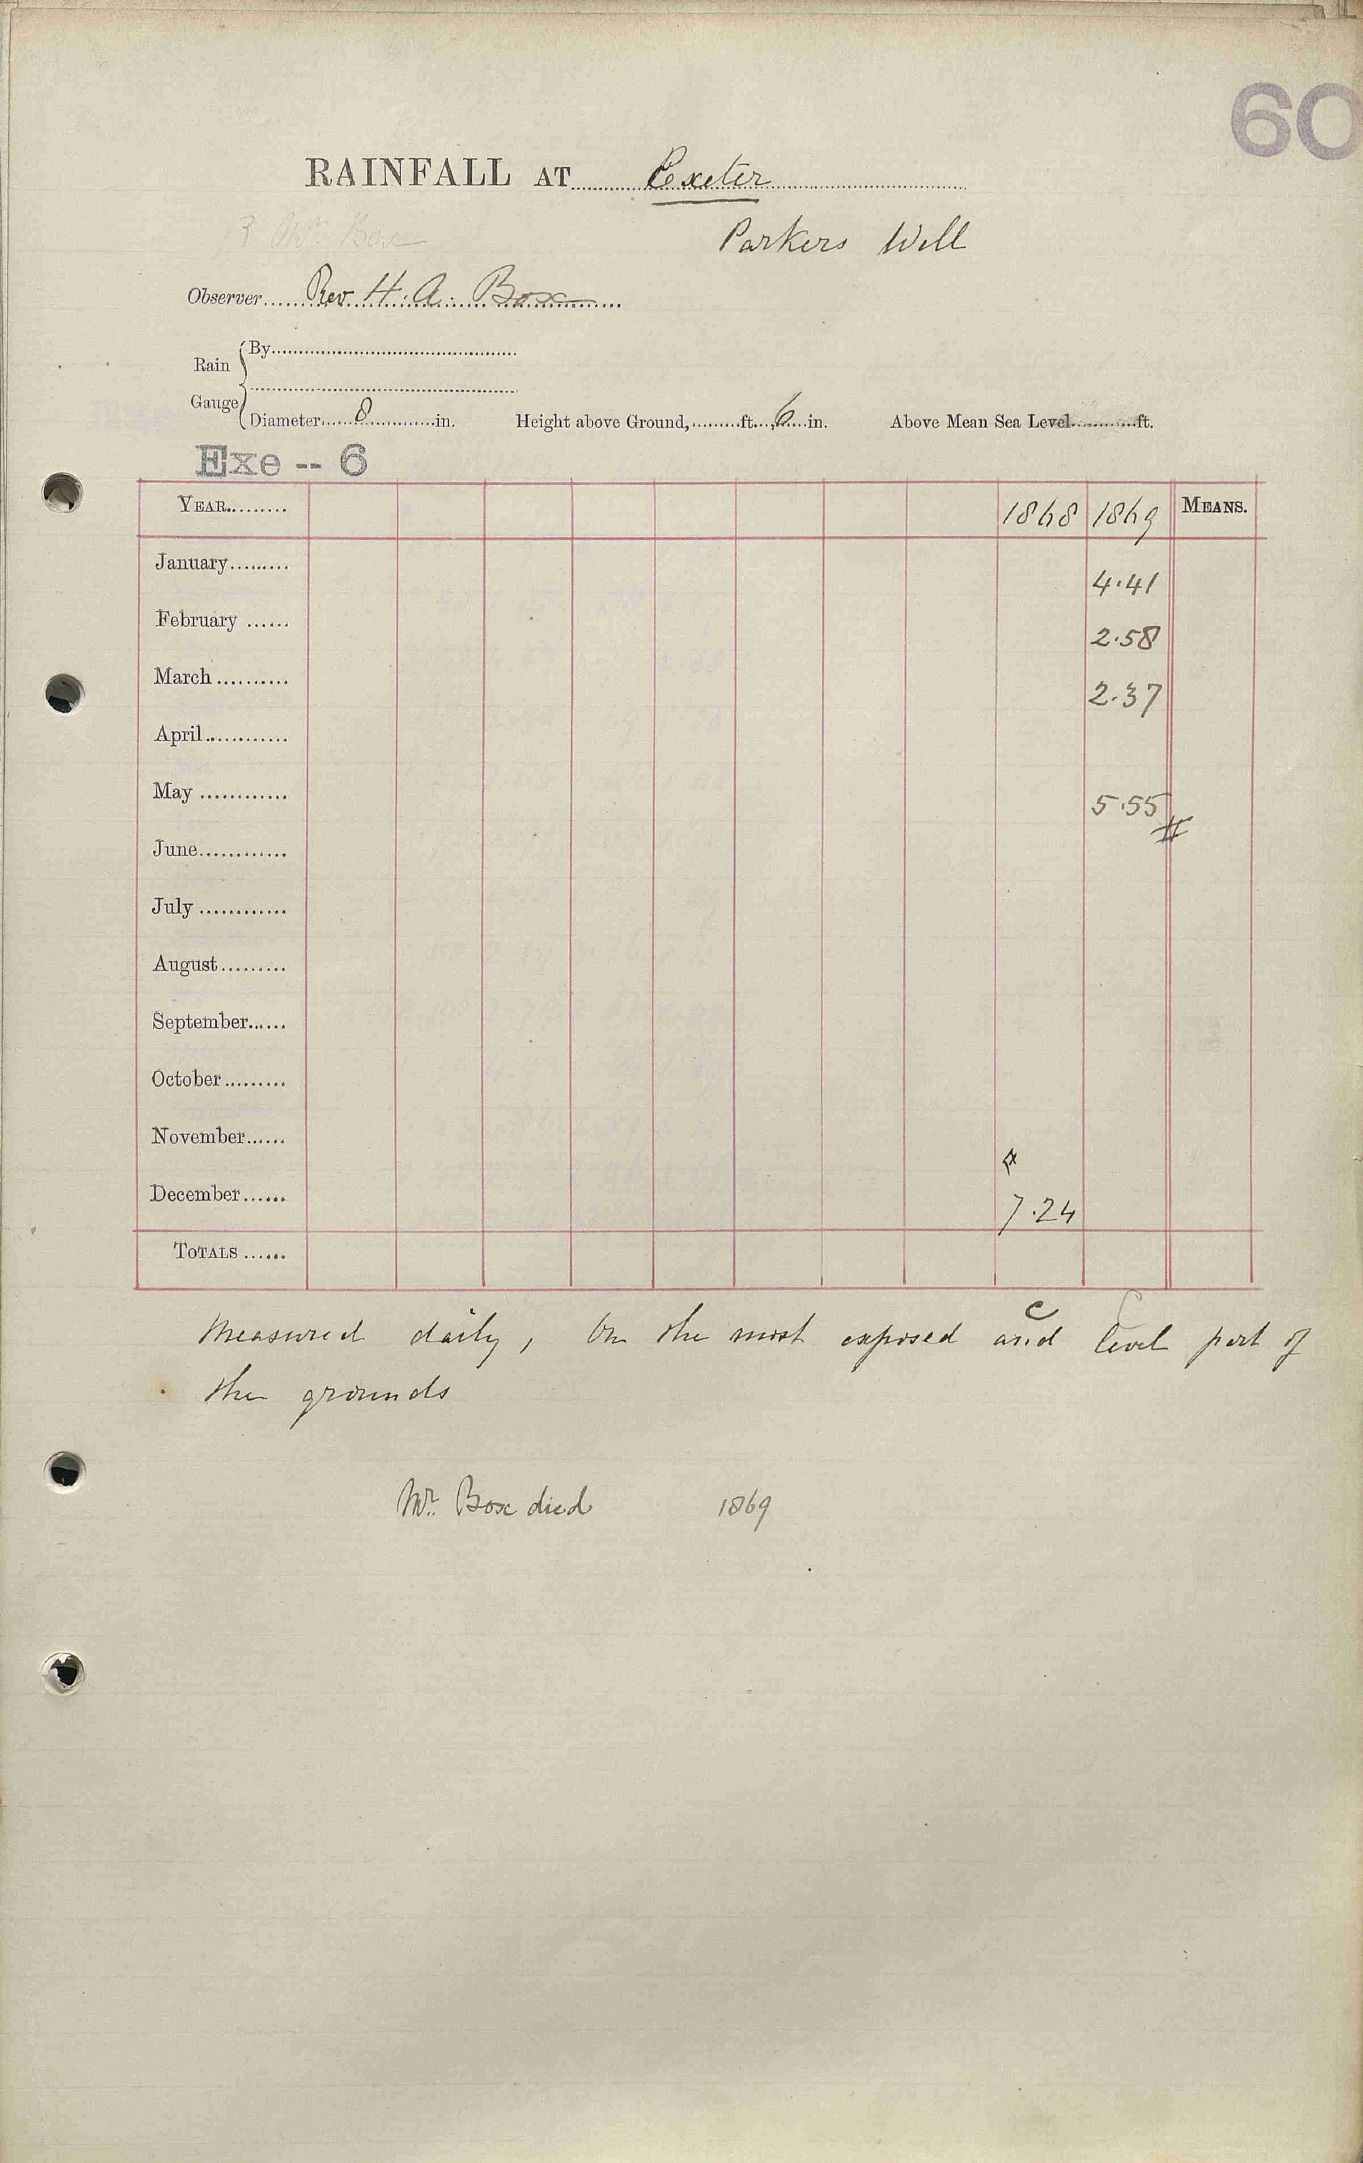 60
RAINFALL AT Exeter
3 Mr. Box
Parkers Well
Observer Rev H. A. Box
Rain Gauge
By
Diameter 8 in. Height above Ground, ft. 6 in. Above Mean Sea Level ft.
Exe -- 6
YEAR 1868 1869 MEANS.
January 4.41
February 2.58
March 2.37
April
May 5.55 #
June
July
August
September
October
November
December 7.24
TOTALS
C C
Measured daily, on the most exposed and level part of
the grounds
Mr. Box died 1869